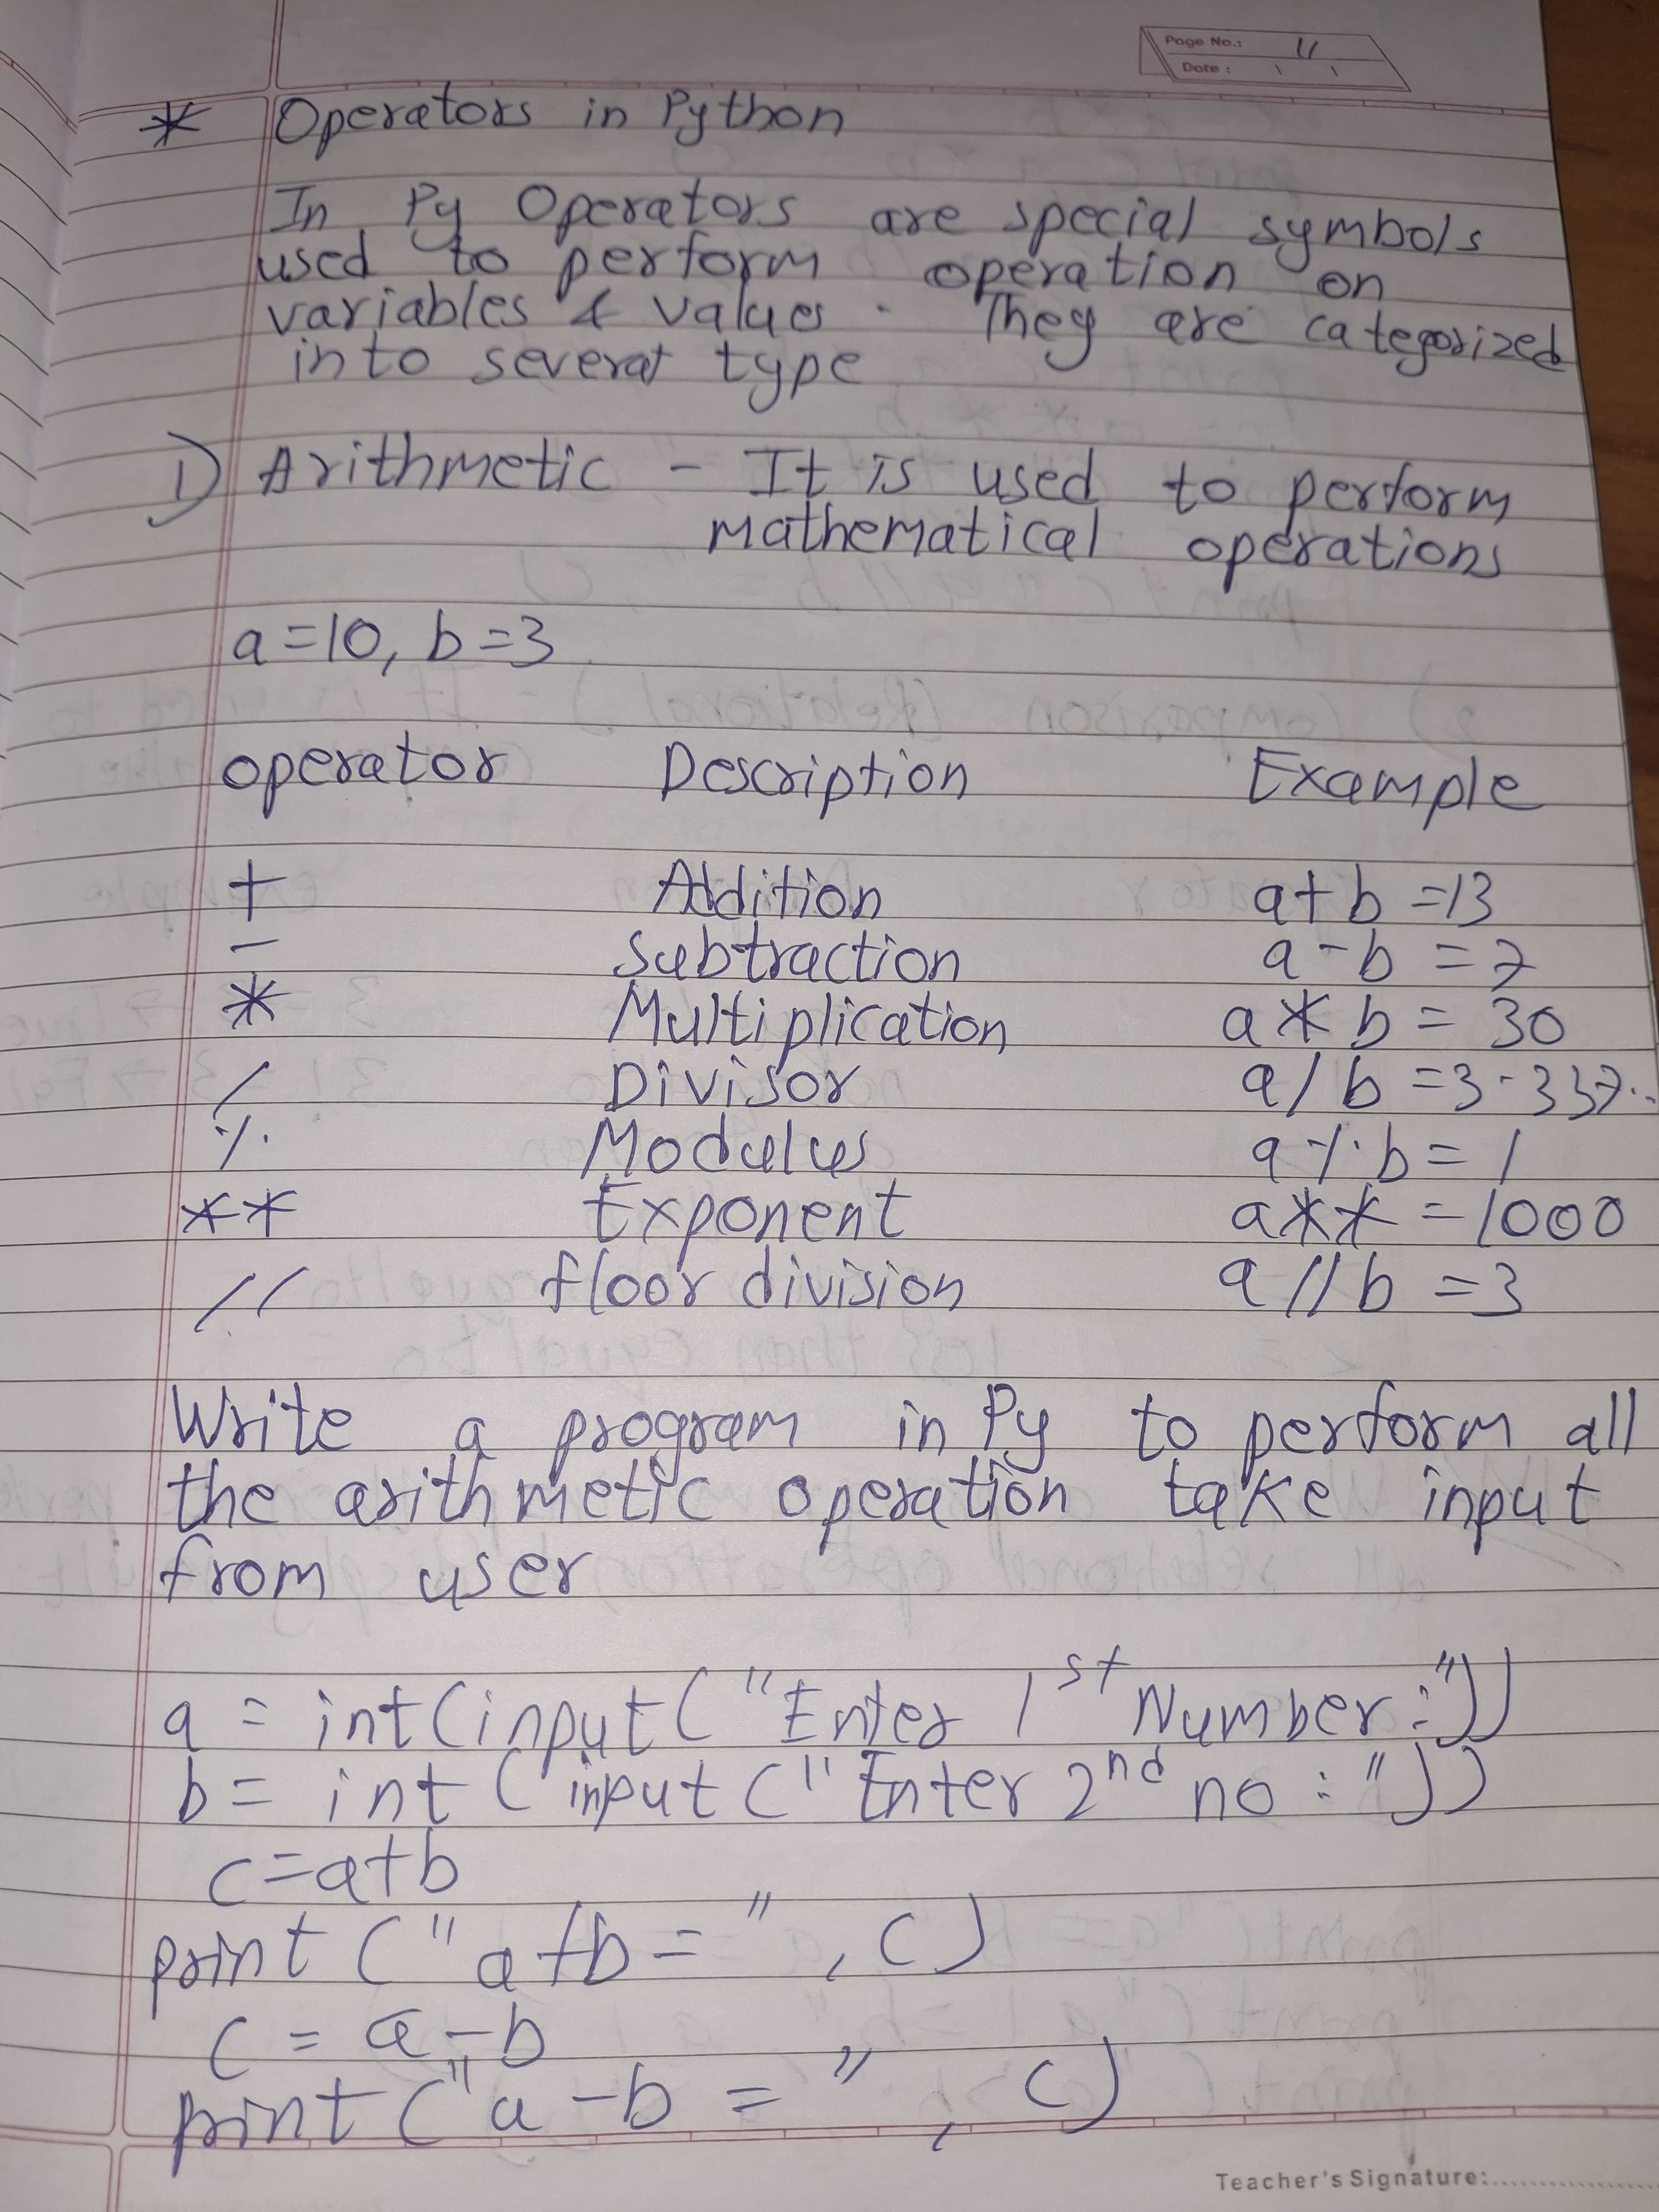 Page No.: 11
Date :
* Operators in Python
In Py Operators are special symbols
used to perform operation on
variables & values . They are categorized
into several type
1) Arithmetic - It is used to perform
mathematical operations
a=10, b=3
operator Description Example
+ Addition a+b =13
- Subtraction a-b =7
* Multiplication a*b = 30
/ Divisor a/b =3.337..
% Modulus a%b = 1
** Exponent a** =1000
// floor division a//b =3
Write a program in Py to perform all
the arithmetic operation take input
from user
a = int(input("Enter 1st Number:"))
b = int (input ("Enter 2nd no : "))
c=a+b
print ("a+b= ", c)
c = a-b
print ("a-b = ", c)
Teacher's Signature: